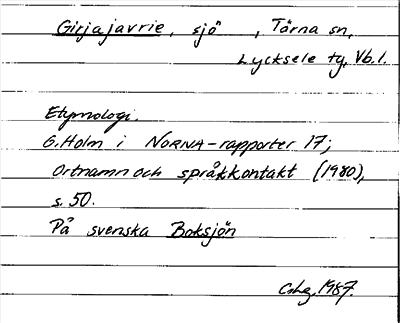 Girjajavrie, sjö, Tärna sn,
Lycksele tg, Vb.l.
Etymologi.
G. Holm i NORNA-rapporter 17;
Ortnamn och språkkontakt (1980),
s. 50.
På svenska Boksjön
1987.